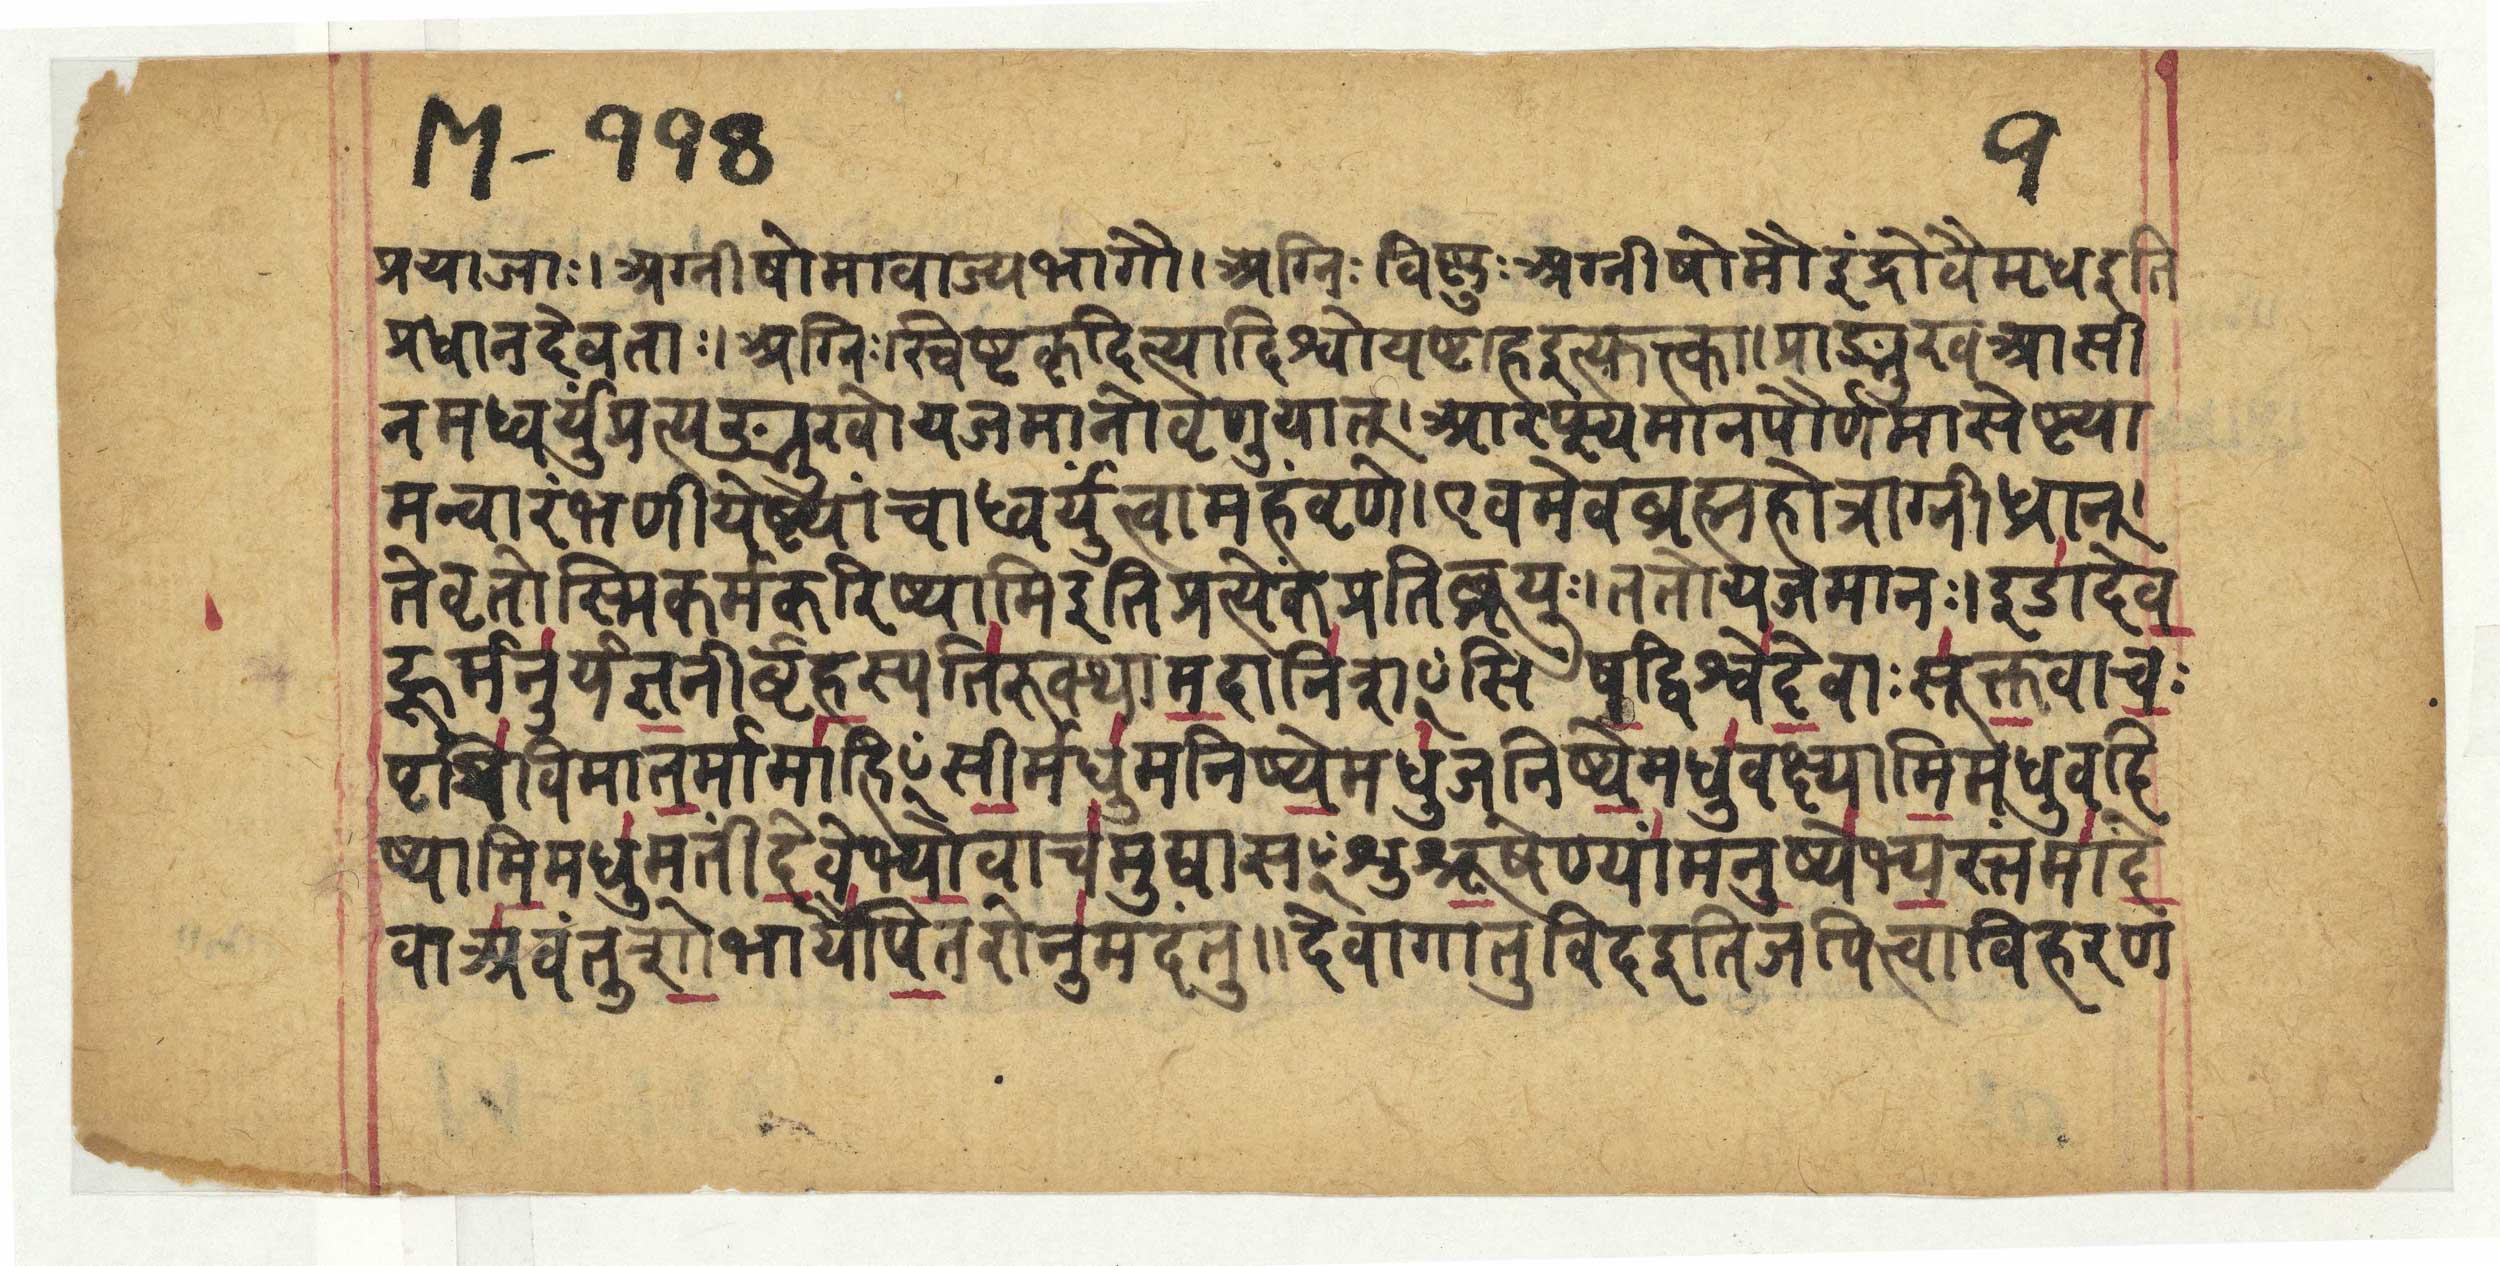 M-११४ १
प्रयाजाः। अग्नीषोमावाज्यभागौ। अग्निः विष्णुः अग्नीषोमौ इंद्रोवैमृधइति
प्रधानदेवताः। अग्निःस्विष्टकृदित्यादिश्वोयष्टाहइत्युक्त्का। प्राङ्मुखआसी
नमध्वर्युंप्रत्यङ्मुखोयजमानोवृणुयात्। आरप्स्यमानपौर्णमासेष्ट्या
मन्वारंभणीयेष्ट्यांचाध्वर्युंत्वामहंवृणे। एवमेवब्रह्महोत्राग्नीध्रान्।
तेवृतोस्मिकर्मकरिष्यामिइतिप्रत्येकंप्रतिब्रूयुः। ततोयजमानः। इडादेव
हूर्मनुर्यज्ञनीर्बृहस्पतिरुक्थामदानिशꣳसि षद्विश्वेदेवाःसूक्तवाचः
पृथिविमातर्मामाहिꣳसीर्मधुमनिष्येमधुजनिष्येमधुवक्ष्यामिमधुवदि
ष्यामिमधुमतींदेवेभ्योवाचमुद्यासꣳशुश्रूषेण्यांमनुष्येभ्यस्तंमांदे
वाअवंतुशोभायैपितरोनुमदंतु॥ देवागातुविदइतिजपित्वाविहरणं